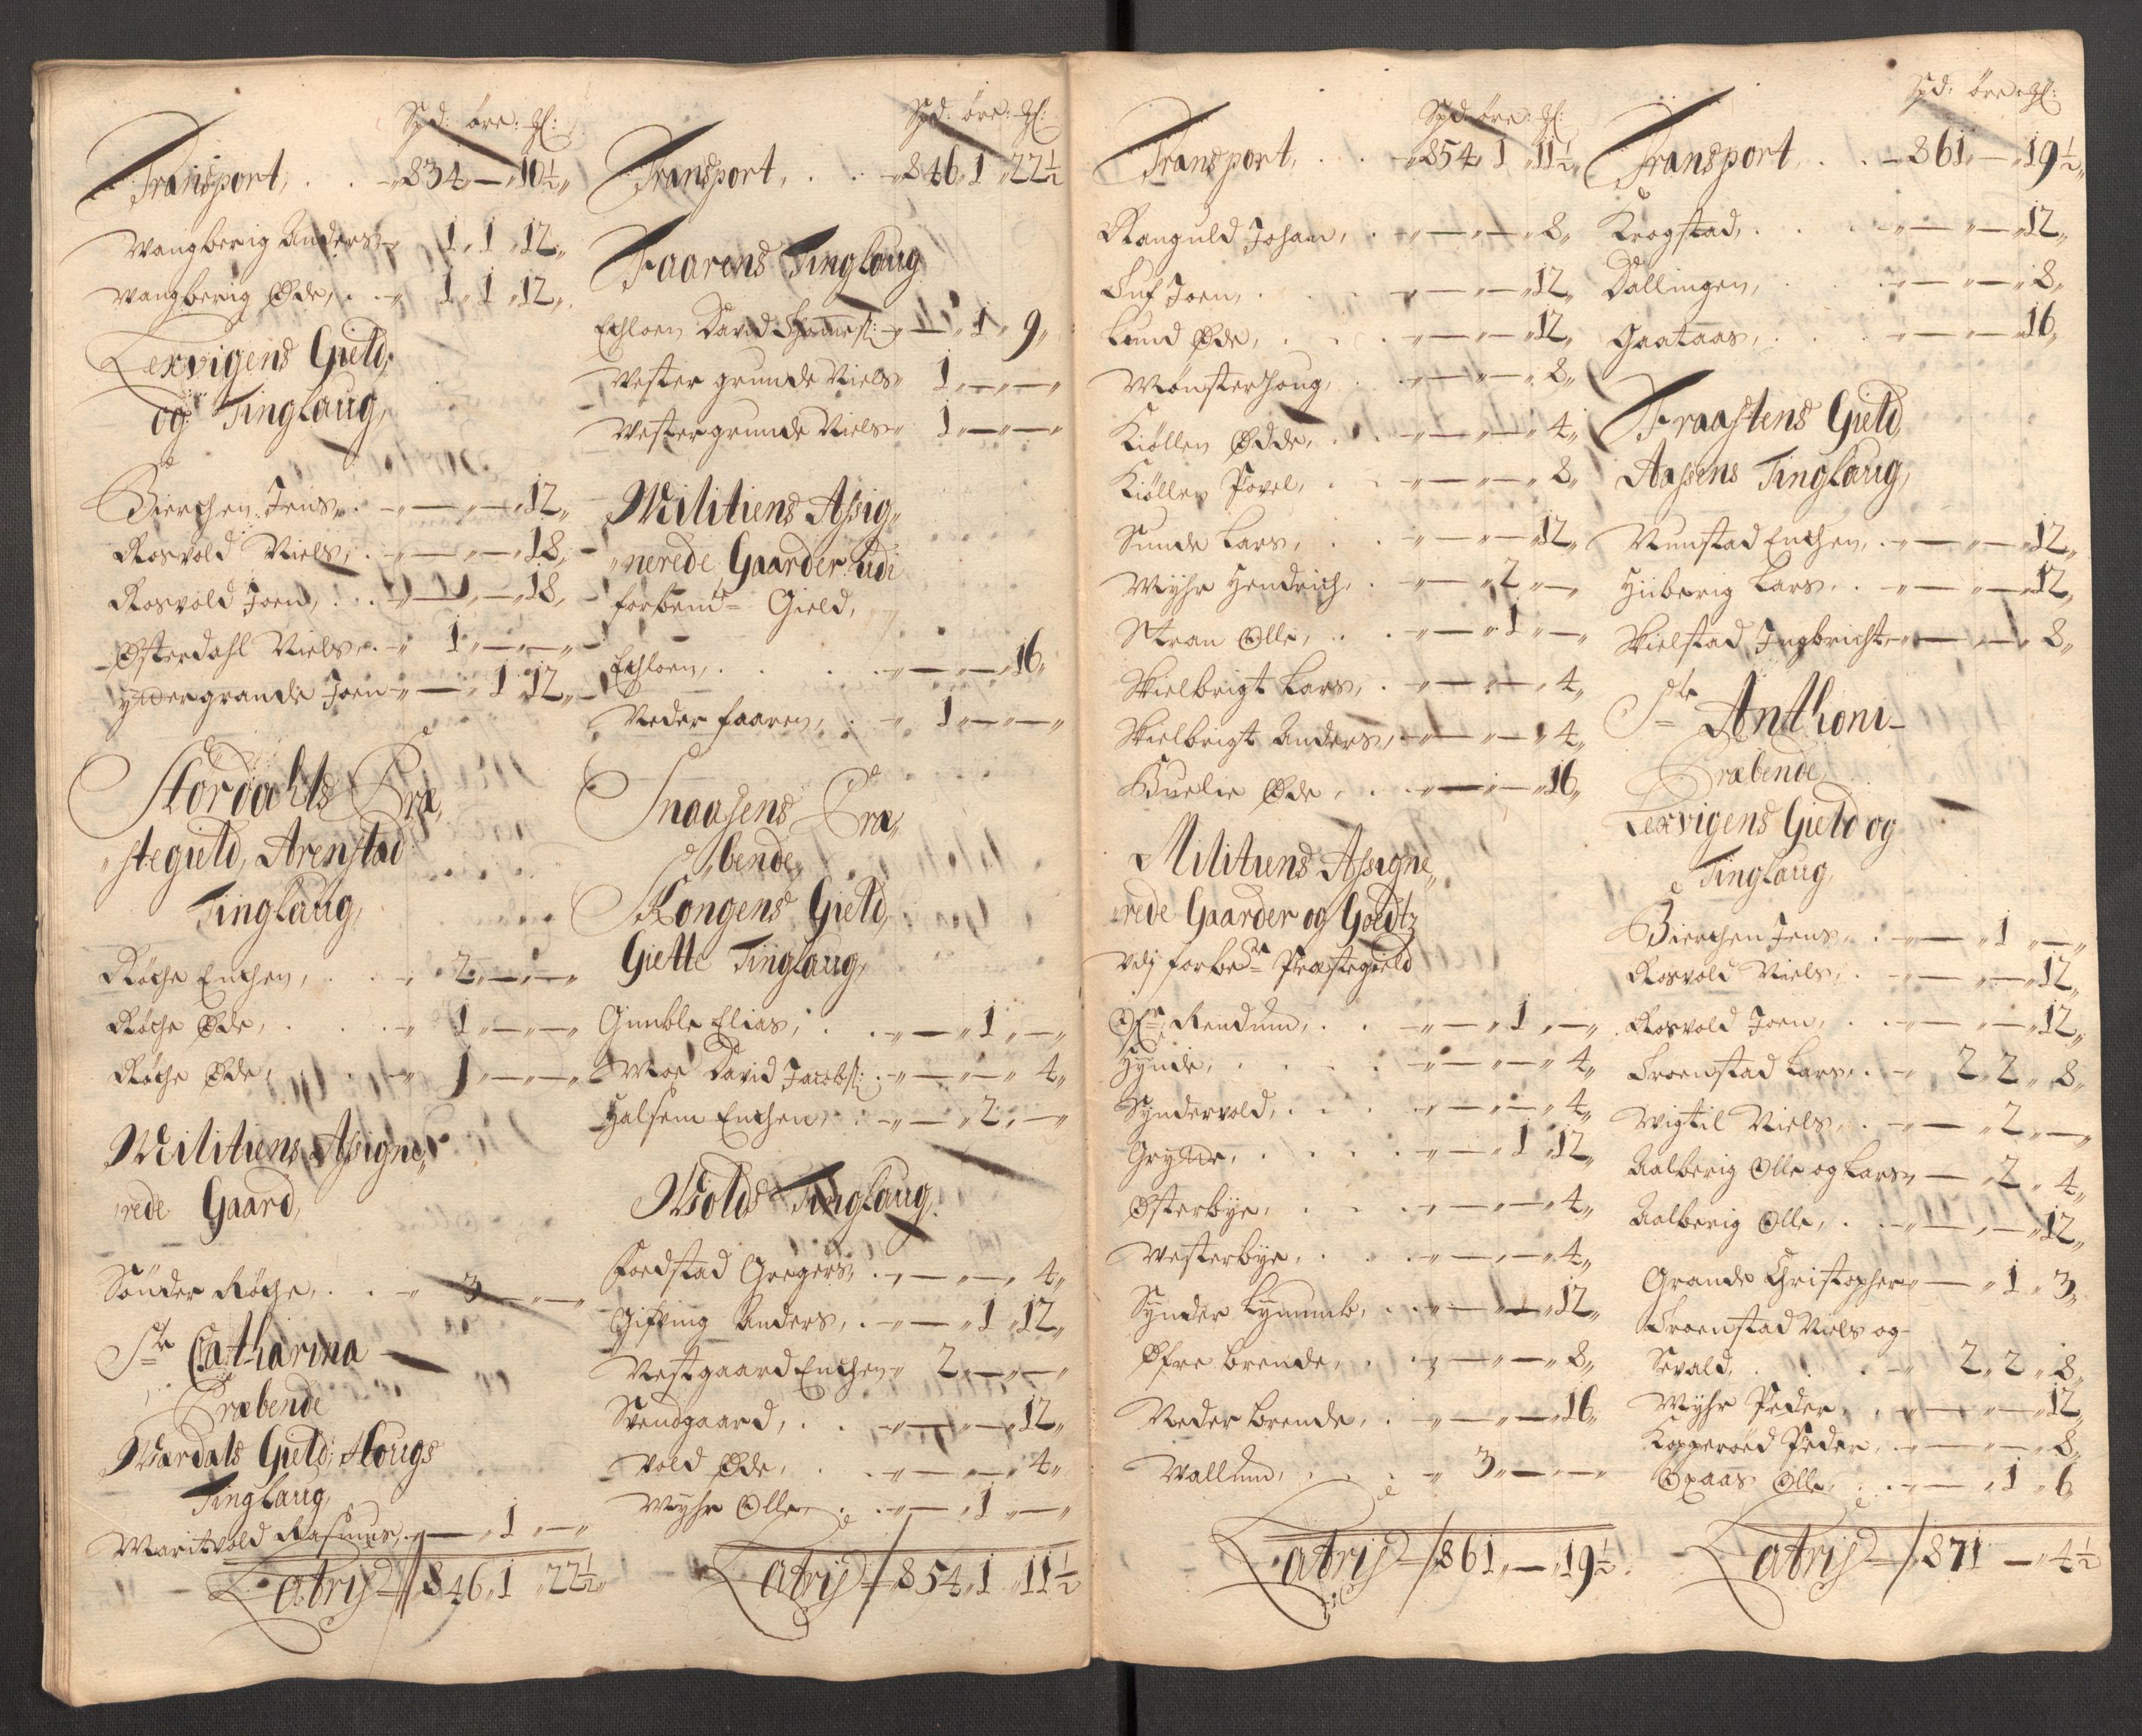 Spd: öre: ß:
Transport, . . -„834„—„10½„
Wangberig Anders„ 1„1„12„
Wangberig Øde, . . „ 1„1„12„
Lexvigens Gield,
og Tinglaug,
Bierchen Jens, . -„—„—„12„
Rosvold Niels, . -„—„—„18„
Rosvold Joen, . . -„—„—„18„
Østerdahl Niels, . -„ 1„—„—„
Ydergrande Joen -„—„1„12„
Stordahls Præ„
„stegield, Arenstad
Tinglaug,
Røche Enchen, . . „ 2„—„—„
Røche Øde, . . . -„ 1„—„—„
Røche Øde, . . . -„ 1„—„—„
Militiens Assigne„
rede Gaard,
Sønder Røche, . . -„ 3„—„—„
Ste Catharina
Præbende
Wærdals Gield, Hougs
Tinglaug,
Maritvold Rasmus, . „—„1„—„
Latrij 846„1„22½„
Spd: öre: ß:
Transport, . . . -„846„1„22½
Faarens Tinglaug
Echloen David -„—„1„9„
Vester grunde Niels„ 1„—„—„
Vestergrunde Niels„ 1„—„—„
Militiens Assig„
„nerede Gaarder udi
forbemte Gield,
Echloen, . . . . -„—„—„16„
Neder faaren, . . -„ 1„—„—„
Snaasens Præ„
bende,
Kongens Gield,
Giette Tinglaug,
Gimble Elias, . . -„—„1„—„
Moe David Jacobs: . -„—„—„4„
Halsem Enchen, . . -„—„2„—„
Wolds Tinglaug,
Foedstad Gregers, . -„—„—„4„
Gifving Anders, . -„—„1„12„
Vestgaard Enchen„ 2„—„—„
Svendgaard, . . -„—„—„12„
Vold Øde, . . -„—„—„4„
Myhr Olle, . . -„—„1„—„
Latrij 854„1„11½
Spd: öre: ß:
Transport, . . . -„854„1„11½„
Ranguld Johan, . -„—„—„8„
Luf Joen, . . . -„—„—„12„
Lund Øde, . . . -„—„—„12„
Mønsterhoug, . . -„—„—„8„
Kiøllen Ødde, . . -„—„—„4„
Kiøllen Povel, . . -„—„—„8„
Sunde Lars, . . -„—„—„12„
Myhr Hendrich, . -„—„2„—„
Stran Olle, . . -„—„1„—„
Skielbrigt Lars, . -„—„—„4„
Skielbrigt Anders, . -„—„—„4„
Buelie Øde, . . -„—„—„16„
Militiens Assigne„
rede Gaarder og Goedtz
Vdj forbede Præstegield
Rendum, . . -„—„1„—„
Hynde, . . . . -„—„—„4„
Syndervold, . . . -„—„—„4„
Grytte, . . . . -„—„1„12„
Østerbye, . . . -„—„—„4„
Westerbye, . . -„—„—„4„
Synder Lynumb, . -„—„—„12„
Øfre brende, . . -„—„—„8„
Neder brende, . . -„—„—„16„
Wallum, . . . -„ 3„—„—„
Latrij 861„—„19½„
Spd: öre: ß:
Transport, . . -„861„—„19½„
Krogstad, . . . -„—„—„12„
Dallingen, . . . -„—„—„8„
Haataas, . . . -„—„—„16„
Fraastens Gield
Aasens Tinglaug,
Nunstad Enchen, . -„—„—„12„
Hiiberig Lars, . -„—„—„12„
Skielstad Ingbricht -„—„—„8„
Ste Anthoni-
Præbende
Lexvigens Gield og
Tinglaug,
Bierchen Jens, . -„—„1„—„
Rosvold Niels, . -„—„—„12„
Rosvold Joen, . . -„—„—„12„
Troenstad Lars, . -„ 2„2„8„
Wigtil Niels, . . -„—„2„—„
Aalberig Olle og Lars„ —„2„4„
Aalberig Olle, . . -„—„—„12„
Grande Christopher„ —„1„3„
Troenstad Niels og
Sevald, . . . -„ 2„2„8„
Myhr Peder, . . -„—„—„12„
Koppervod Peder, . -„—„—„8„
Opaas Olle, . . -„—„1„6„
Latrij 871„—„4½